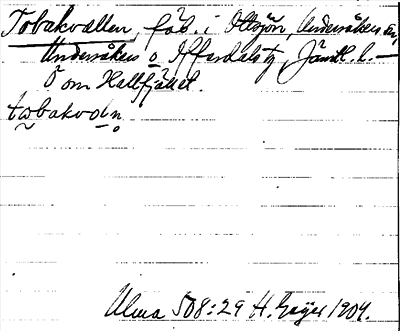 Tobakvallen, fäb. i Ottsjön, Undersåkers sn,
Undersåkers o Offerdals tg, Jämtl. l.
Ö om Hallfjället.
tobakvoln
Ulma 508:29 H. Geijer 1904.